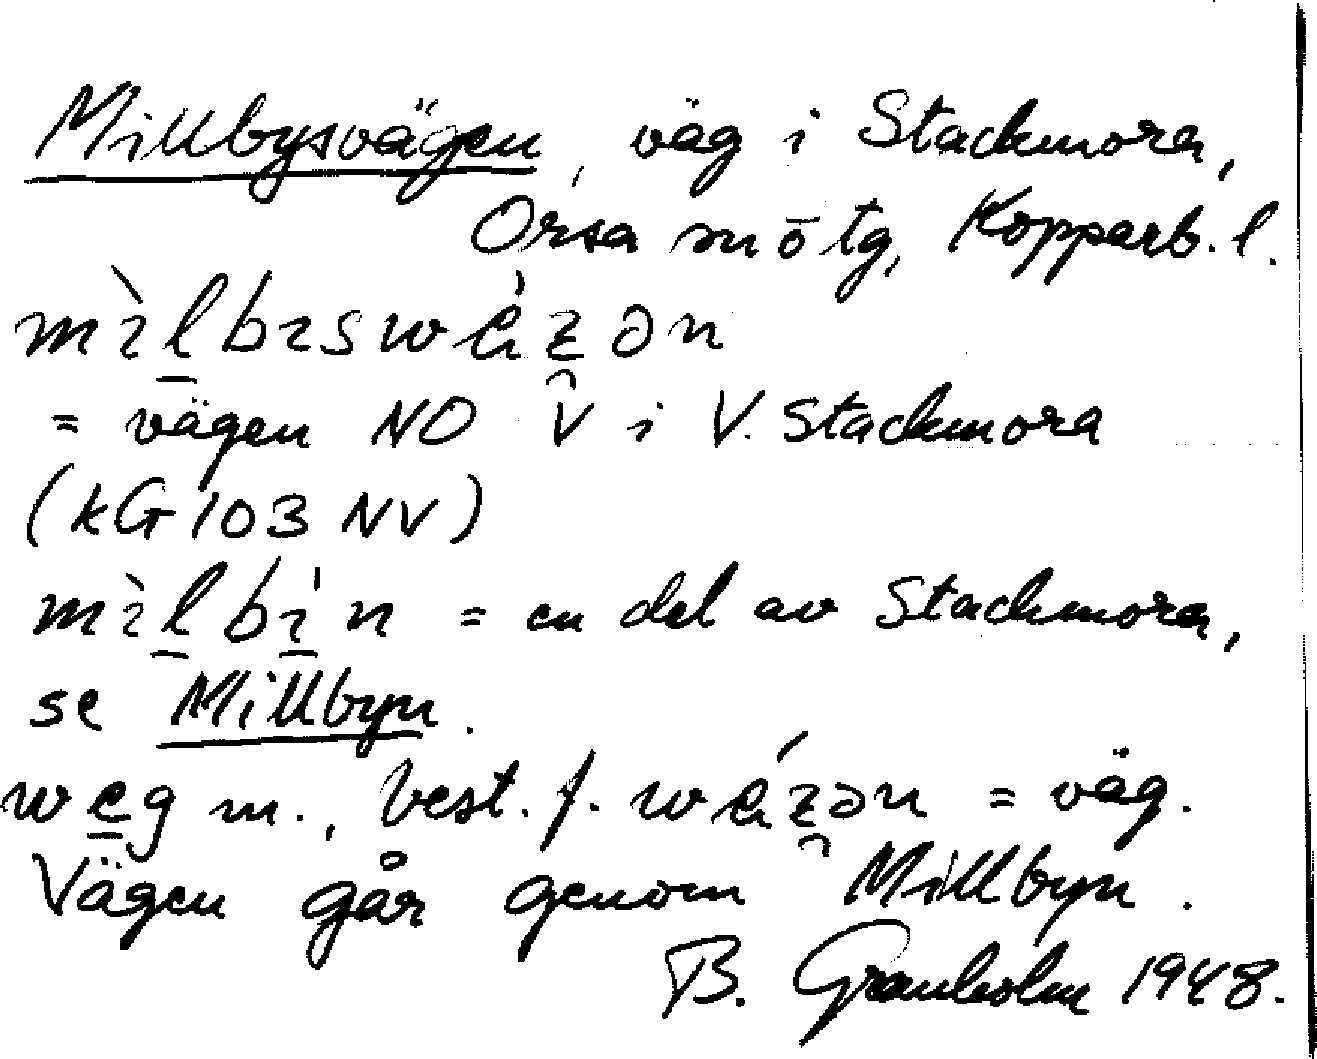 Millbysvägen, väg i Stackmora,
Orsa sn ō tg, Kopparb. l.
mìlbɪswǽʐən
= vägen NO V i V. Stackmora
(kG 103 NV)
mìlbɪ́n = en del av Stackmora,
se Millbyn.
weg m., best. f. wǽʐən = väg.
Vägen går genom Millbyn.
B. Granholm 1948.